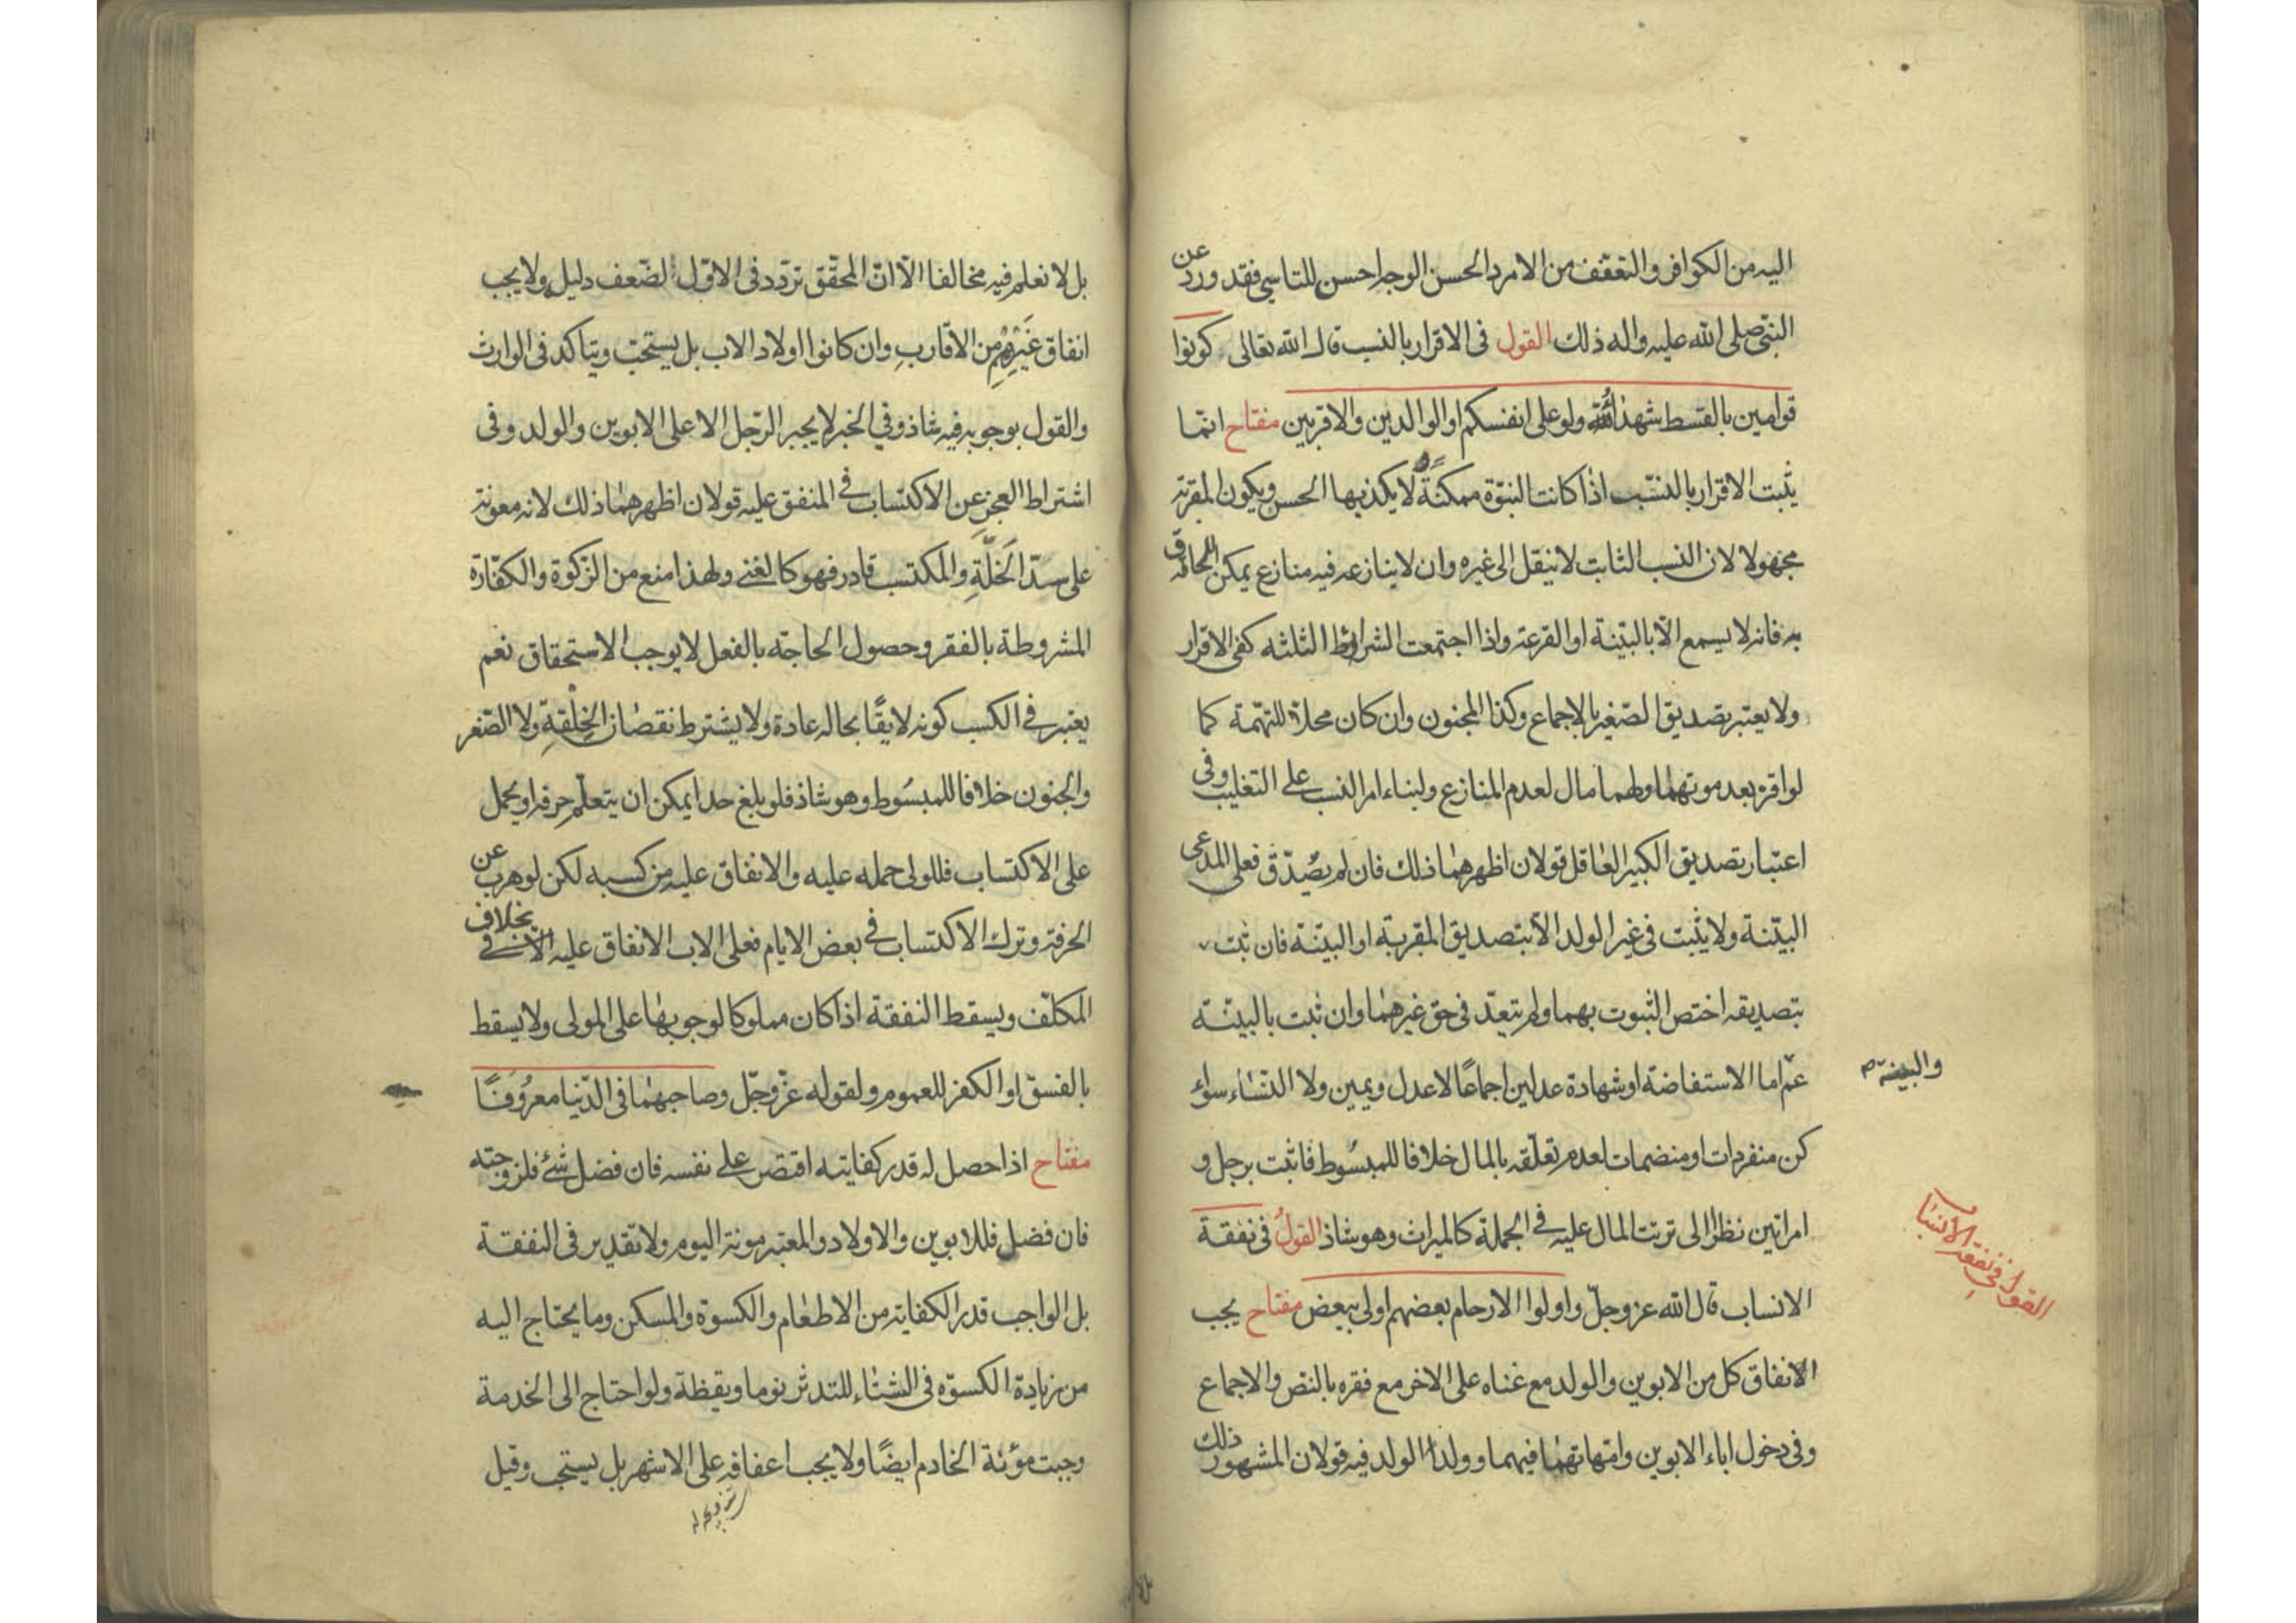 اليه من الكوافر والتعفف من الامرد الحسن الوجه احسن للتاسي فقد ورد عن
النبي صلى الله عليه واله ذلك القول في الاقرار بالنسب قال الله تعالى كونوا
قوامين بالقسط شهداء لله ولو على انفسكم او الوالدين والاقربين مفتاح انما
يثبت الاقرار بالنسب اذا كانت البنوة ممكنة لا يكذبها الحس ويكون المقر به
مجهولا لان النسب الثابت لا ينقل الى غيره وان لا ينازعه فيه منازع يمكن الحاقه
به فانه لا يسمع الا بالبينة او القرعة واذا اجتمعت الشرائط الثلثه كفى الاقرار
ولا يعتبر تصديق الصغير بالاجماع وكذا المجنون وان كان محلا للتهمة كما
لو اقر بعد موتهما ولهما مال لعدم المنازع ولبناء امر النسب على التغليب وفي
اعتبار تصديق الكبير العاقل قولان اظهرهما ذلك فان لم يصدق فعلى المدعى
البينة ولا يثبت في غير الولد الا بتصديق المقر به او البينة فان ثبت
بتصديقه اختص الثبوت بهما ولم يتعد في حق غيرهما وان ثبت بالبينة
والبينة
عم اما الاستفاضة او شهادة عدلين اجماعا لا عدل ويمين ولا النساء سواء
كن منفردات او منضمات لعدم تعلقه بالمال خلافا للمبسوط فاثبت برجل و
امراتين نظرا الى ترتب المال عليه في الجملة كالميراث وهو شاذ القول في نفقة
القول في نفقة الانساب
الانساب قال الله عز وجل واولوا الارحام بعضهم اولى ببعض مفتاح يجب
الانفاق كل من الابوين والولد مع غناه على الاخر مع فقره بالنص والاجماع
وفي دخول اباء الابوين وامهاتهما فيهما وولد الولد فيه قولان المشهور ذلك
بل لا نعلم فيه مخالفا الا ان المحقق تردد في الاول لضعف دليله ولا يجب
انفاق غيرهم من الاقارب وان كانوا اولاد الاب بل يستحب ويتاكد في الوارث
والقول بوجوبه فيه شاذ وفي الخبر لا يجبر الرجل الا على الابوين والولد وفي
اشتراط العجز عن الاكتساب في المنفق عليه قولان اظهرهما ذلك لانه معونة
على سد الخلة والمكتسب قادر فهو كالغني ولهذا منع من الزكوة والكفارة
المشروطة بالفقر وحصول الحاجة بالفعل لا يوجب الاستحقاق نعم
يعتبر في الكسب كونه لايقا بحاله عادة ولا يشترط نقصان الخلقة ولا الصغر
والجنون خلافا للمبسوط وهو شاذ فلو بلغ حدا يمكن ان يتعلم حرفه او يحمل
على الاكتساب فللولي حمله عليه والانفاق عليه من كسبه لكن لو هرب عن
الحرفة وترك الاكتساب في بعض الايام فعلى الاب الانفاق عليه بخلاف
المكلف ويسقط النفقة اذا كان مملوكا لوجوبها على المولى ولا يسقط
بالفسق او الكفر للعموم ولقوله عز وجل وصاحبهما في الدنيا معروفا
مفتاح اذا حصل له قدر كفايته اقتصر على نفسه فان فضل شئ فلزوجته
فان فضل فللابوين والاولاد والمعتبر مونة اليوم ولا تقدير في النفقة
بل الواجب قدر الكفاية من الاطعام والكسوة والمسكن وما يحتاج اليه
من زيادة الكسوة في الشتاء للتدثر نوما ويقظة ولو احتاج الى الخدمة
وجبت مؤنة الخادم ايضا ولا يجب اعفافه على الاشهر بل يستحب وقيل